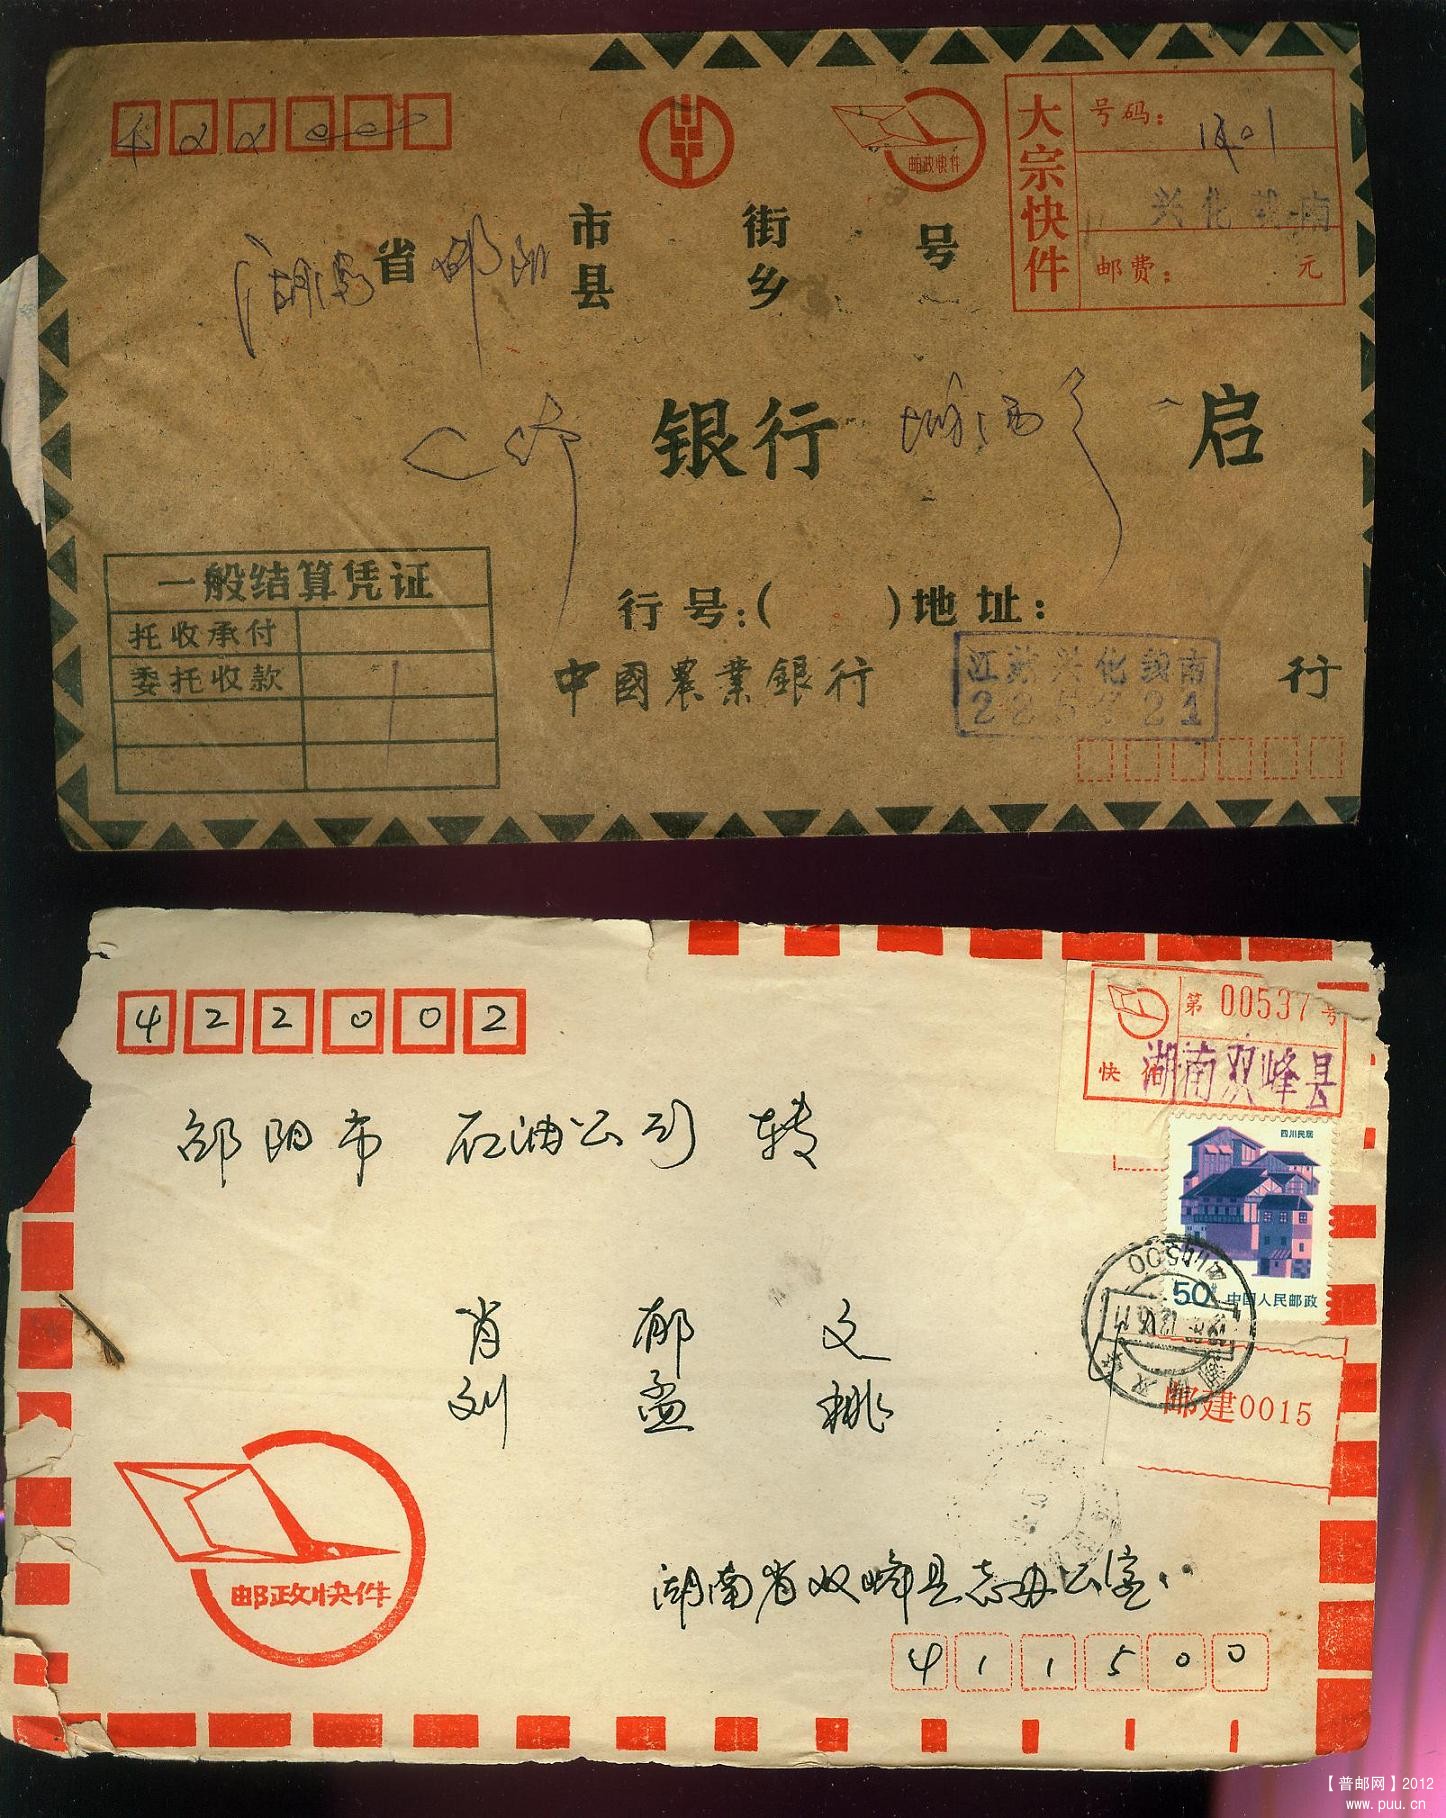 422000
邮政快件
大宗快件
号码：1201
兴化戴南
邮费： 元
湖南省邵阳市 街 号
县 乡
银行 启
一般结算凭证
托收承付
委托收款
行号：( )地址：
中國農業銀行 行
江苏兴化戴南
225721
422002
第00537号
快件
湖南双峰县
邵阳市 石油公司 转
四川民居
50分 中国人民邮政
411500
肖郁文
刘孟桃
邮建0015
邮政快件
湖南省双峰县志办公室
411500
【普邮网】2012
www.puu.cn